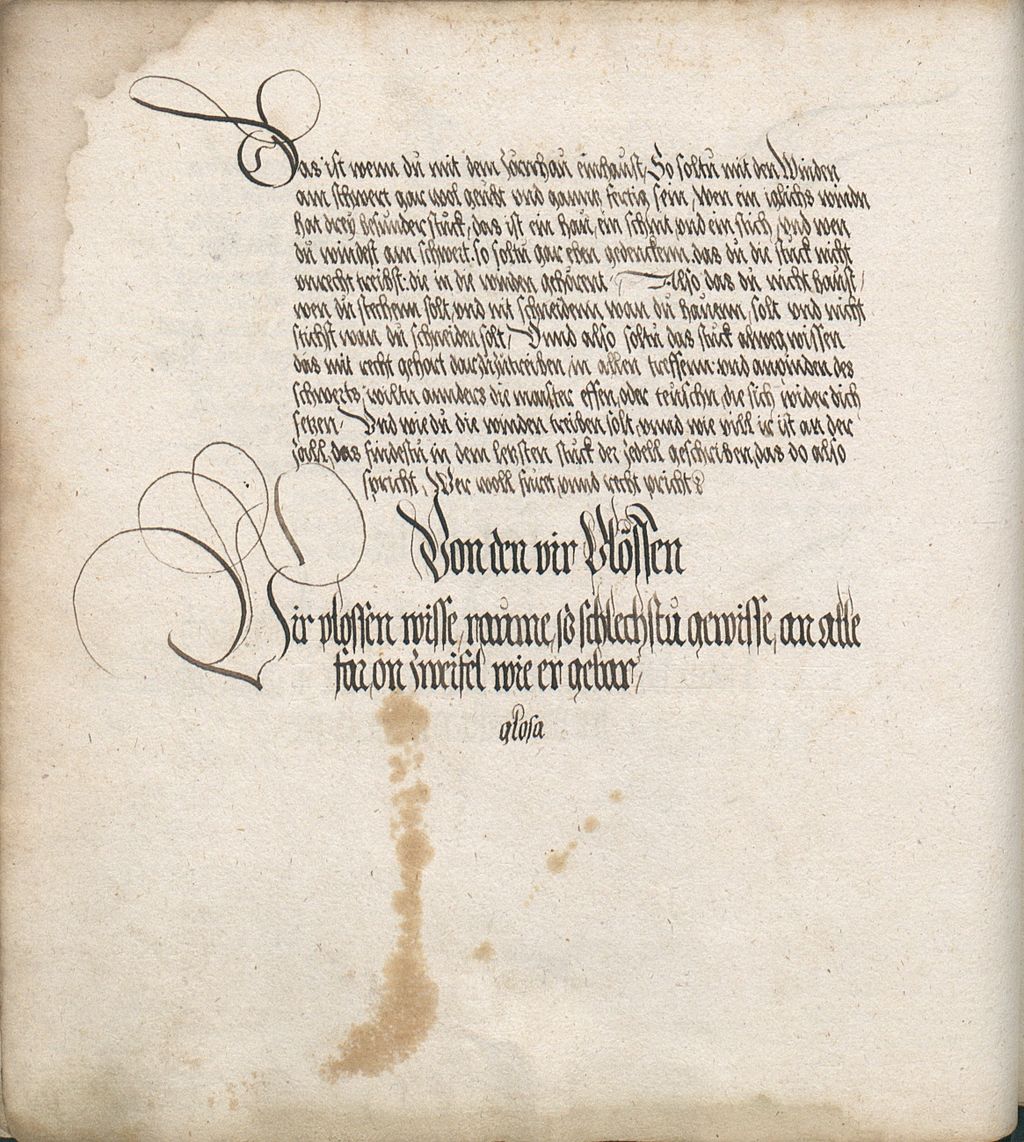 Das ist wenn du mit dem Zornhau einhaust, So soltu mit den Winden
am schwert gar wol geübt vnd gannz fertig sein, Wen ein iglichs winden
hat drey besunder stuck, das ist ein hau, ein schnit, vnd ein stich, Vnd wen
du windest am schwert. so soltu gar eben gedencken. das du die stuck nicht
vnrecht treibst. die in die winden gehörent Also das du nicht haust,
wen du stechenn solt, vnd nit schneidenn wan du hauenn, solt vnd nicht
stichst wan du schneiden solt, Vnnd also soltu das stuck alweg wissen
das mit recht gehort darzuzutreiben, in allen treffenn vnd anwinden des
schwerts, wiltu annders die maister effen, oder teuschn, die sich wider dich
setzen. Vnd wie du die winden treiben solt, vnnd wie vill ir ist an der
zall, das findestu in dem lersten stuck der zedell geschriben, das do also
spricht, Wer woll füret, vnnd recht pricht
Von den vir Blössen
Vir plössen wisse, raume, so schlechstu gewisse, an alle
far, on zweifel wie er gebar,
glosa